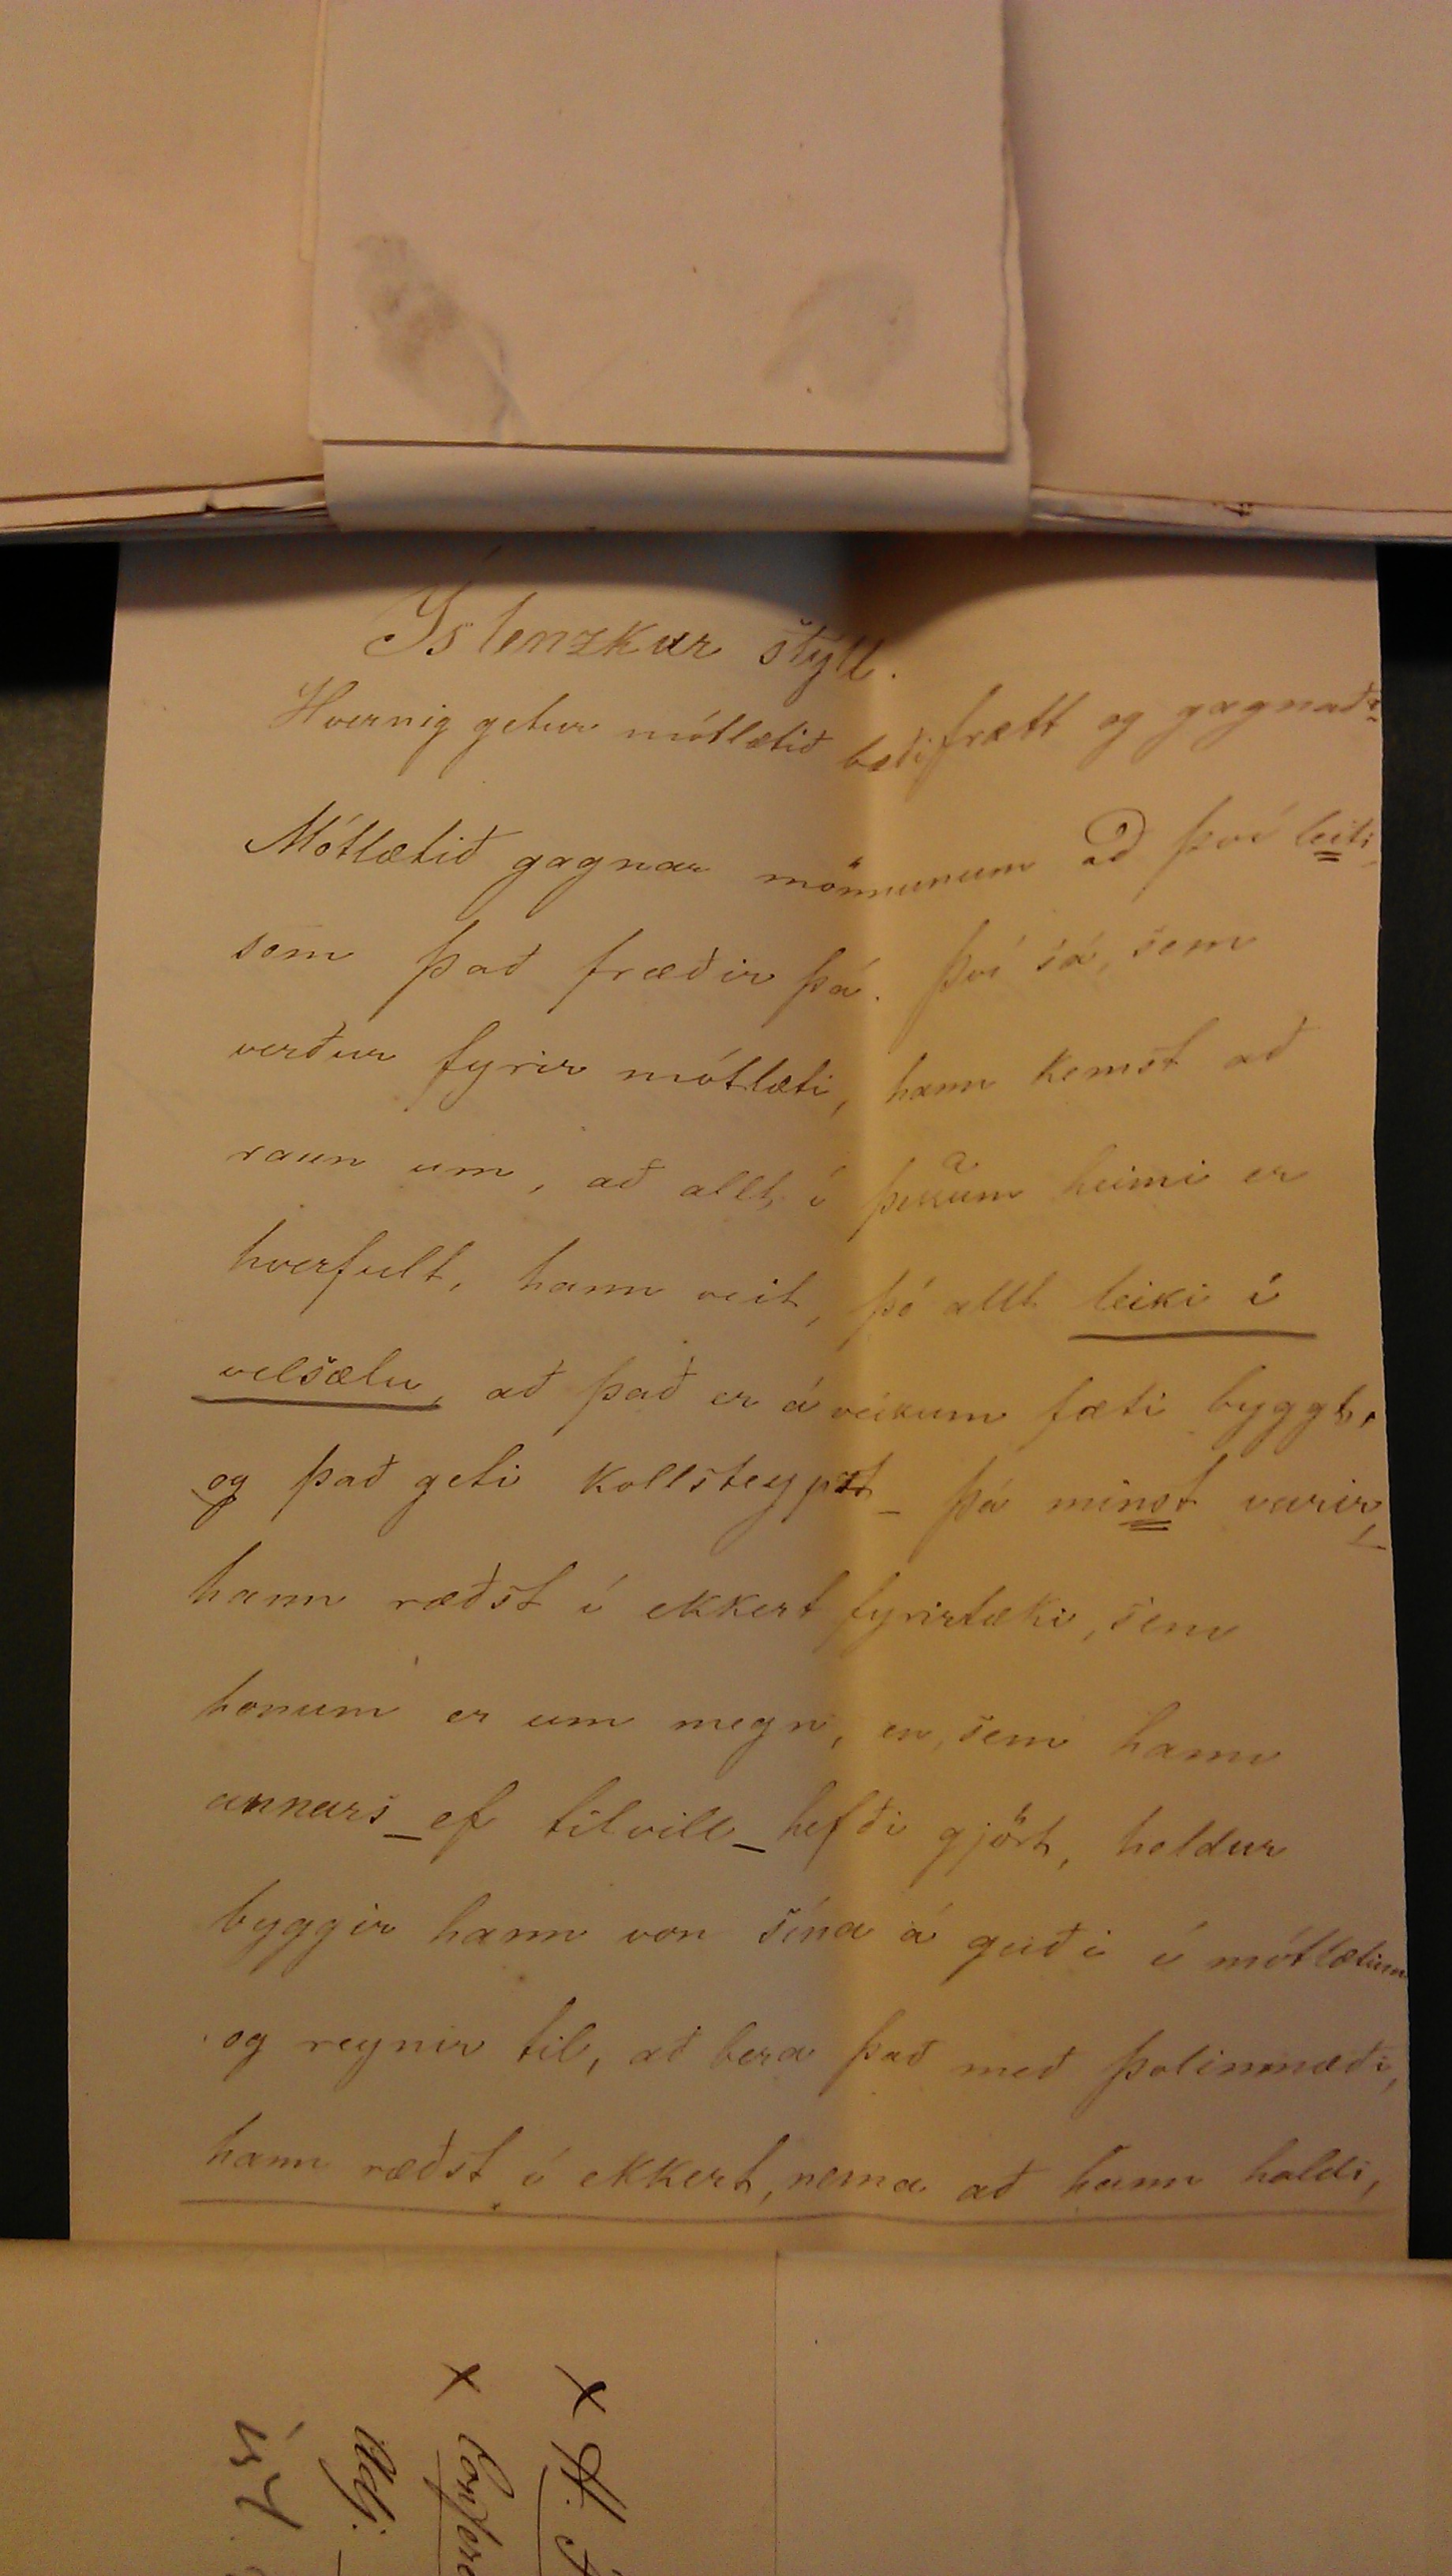 Íslenzkur stýll.
Hvernig getur mótlætið bæði frætt og gagnað?
Mótlætið gagnar mönnunum að því leiti,
sem það fræðir þá. Því sá, sem
verður fyrir mótlæti, hann kemst að
raun um, að allt í þessum heimi er
hverfult, hann veit, þó allt leiki í
velsælu, að það er á veikum fæti byggt,
og það geti kollsteypst þá minst varir,
hann ræðst í ekkert fyrirtæki, sem
honum er um megn, en, sem hann
annars _ ef til vill _ hefði gjört, heldur
byggir hann von sína á guði í mótlætinu
og reynir til, að bera það með þolinmæði,
hann ræðst í ekkert, nema að hann haldi,
x H.
x
Adj.